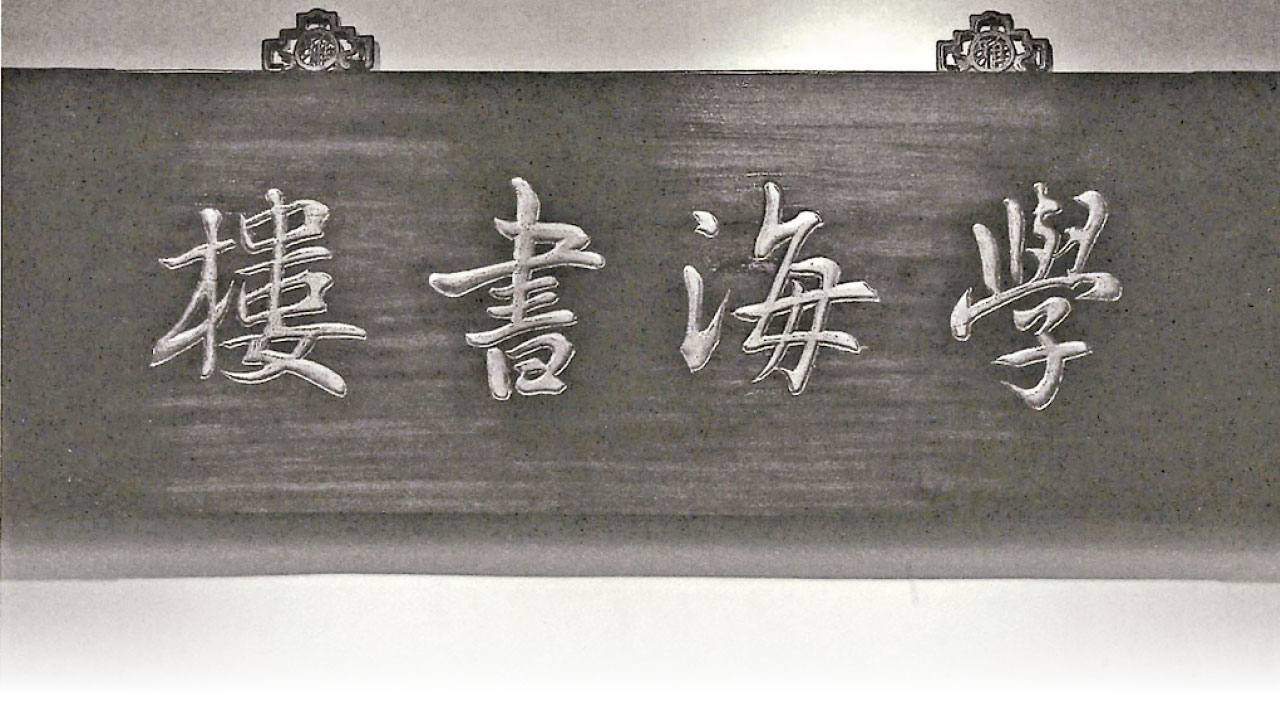 學海書樓